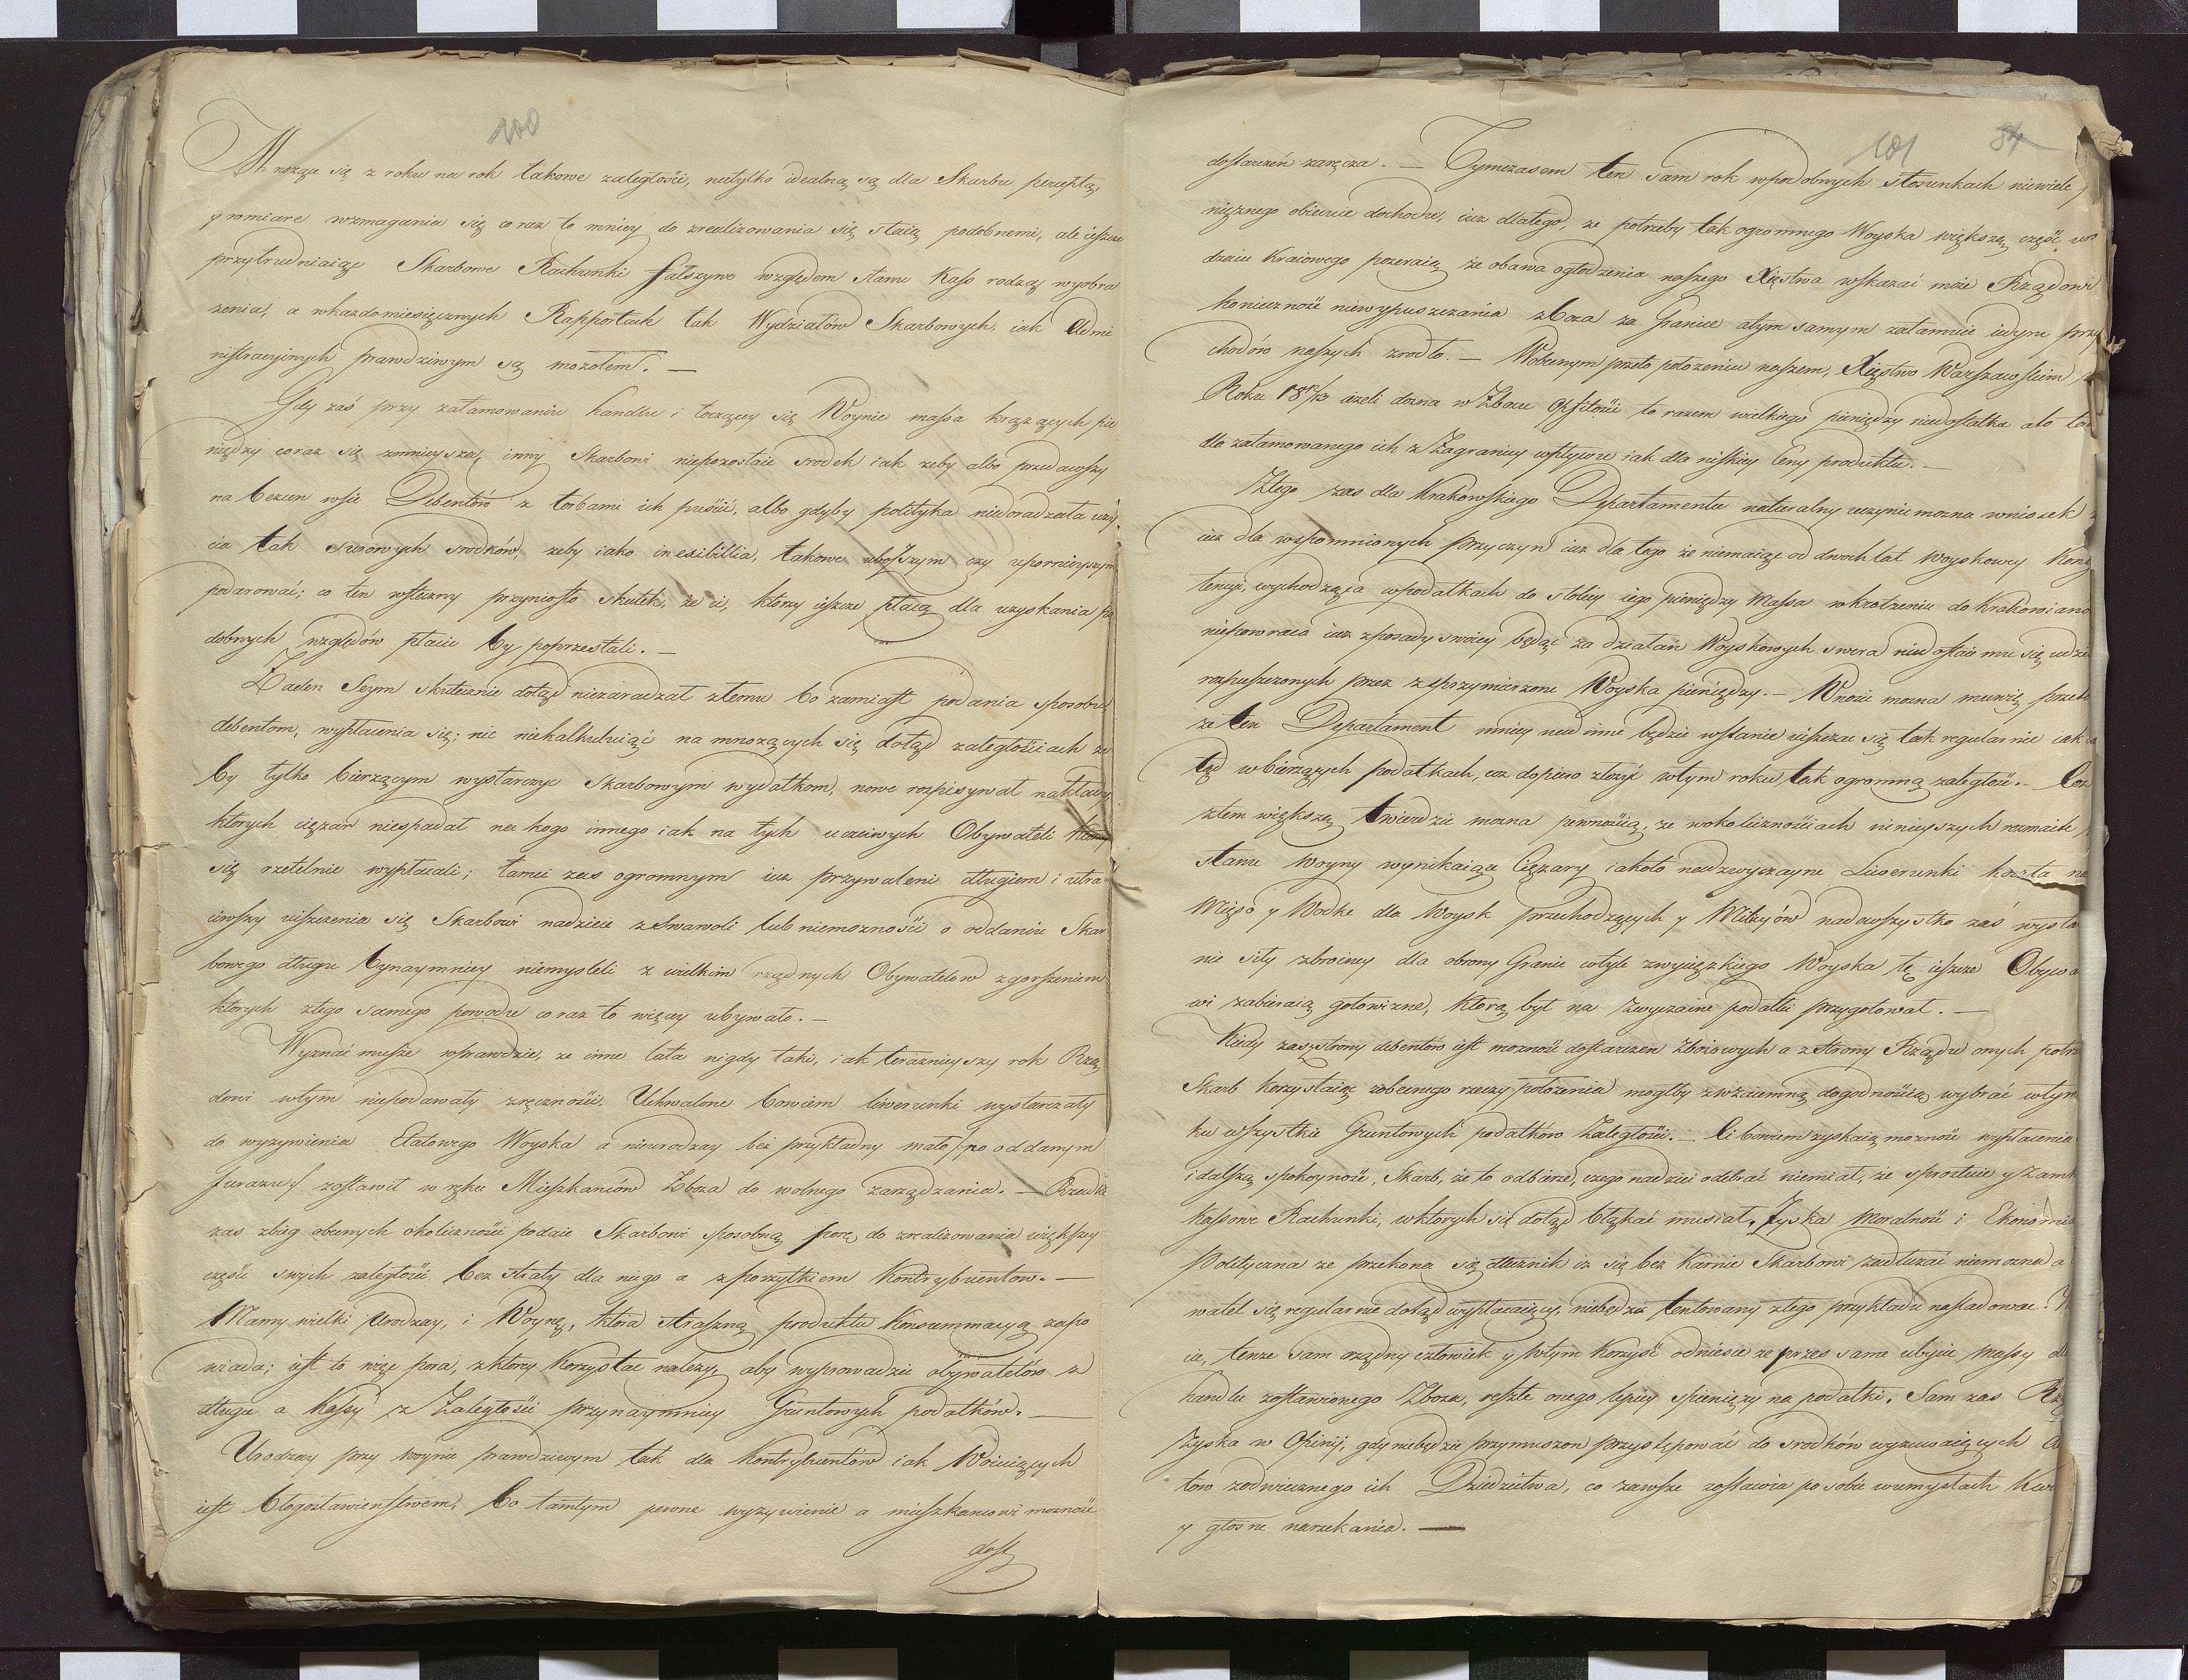 100
Mnożąc się z roku na rok takowe zaległości, nietylko idealną są dla Skarbu perceptą,
y w miarę wzmagania się coraz to mniey do zrealizowania się staią podobnemi, ale ieszcze
przytrudniaiąc Skarbowe Rachunki fałszywe względem stanu Kass rodzą wyobra
żenia, a w każdomiesięcznych Rapportach tak Wydziałów Skarbowych, iak Admi
nistracyinych prawdziwym są mozołem. —
Gdy zaś przy zatamowaniu handlu i toczącey się Woynie massa krążących pie
niędzy coraz się zmnieysza, inny Skarbowi niepozostaie srodek iak żeby albo przedawszy
na bezcen wsie Debentów z torbami ich puścić, albo gdyby polityka nieodradzała uży
cia tak surowych srodków, żeby iako inexibilia, takowe uboższym czy upornieyszym
podarować; co ten wsteczny przyniosło skutek, że ci, ktorzy ieszcze płacą dla uzyskania po
dobnych względów płacić by poprzestali. —
Żaden Seym skutecznie dotąd niezaradzał złemu bo zamiast podania sposobu
debentom, wypłacenia się; nic niekalkuluiąc na mnożących się dotąd zaległościach że
by tylko bieżącym wystarczyć Skarbowym wydatkom, nowe rozpisywał nakłady
ktorych ciężar niespadał na kogo innego iak na tych uczciwych Obywateli ktorzy
się rzetelnie wypłacali; tamci zas ogromnym iuż przywaleni długiem i utra
ciwszy uiszczenia się Skarbowi nadzieie z Swawoli lub niemożności o oddaniu Skar
bowego długu bynaymniey niemysleli z wielkim rządnych Obywatelow zgorszeniem
ktorych ztego samego powodu coraz to więcey ubywało. —
Wyznać muszę wprawdzie, że inne lata nigdy takiey, iak teraznieyszy rok Rzą
dowi w tym niepodawały zręczności. Uchwalone bowiem liwerunki wystarczały
do wyżywienia Etatowego Woyska a nieurodzay bez przykładny mało /: po oddanym
furażu :/ zostawił w ręku Mieszkańców Zboża do wolnego zarządzania. — Rzadki
zas zbieg obecnych okoliczności podaie Skarbowi sposobną porę do zrealizowania większey
części swych zaległości bez straty dla niego a z pożytkiem Kontrybuentow. —
Mamy wielki Urodzay, i Woynę, ktora straszną produktu Konsummacyą zapo
wiada; iest to więc pora, z ktorey korzystać należy, aby wyprowadzić obywatelów z
długu a Kassy z Zaległości przynaymniey Gruntowych podatków. —
Urodzay przy woynie prawdziwym tak dla Kontrybuentów iak Woiuiących
iest błogosławienstwem, bo tamtym pewne wyżywienie a mieszkańcowi możność
dost
101
84
dostarczeń zaręcza. — Tymczasem ten sam rok w podobnych stosunkach niewiele
nięznego obiecuie dochodu, iuż dlatego, że potrzeby tak ogromnego Woyska większą część uro
dzaiu Kraiowego pożeraią, że obawa ogłodzenia naszego Xięstwa wskazać może Rządowi
konieczność niewypuszczania zboża za Granice a tym samym zatamuie iedyne przy
chodów naszych zrodło. — W obecnym przeto położeniu naszem, Xięstwo Warszawskie
Roku 18 12/13 ieżeli dozna w Zbożu Obfitości to razem wielkiego pieniędzy niedostatku a to
dla zatamowanego ich z Zagranicy wpływu iak dla niskiey Ceny produktu. —
Ztego zas dla Krakowskiego Departamentu naturalny uczynić można wniosek
iuż dla wspomnionych przyczyn iuż dlatego że niemaiąc od dwoch lat Woyskowey Kons
tencyi, wychodząca w podatkach do stolicy iego pieniędzy Massa w krotceniu do Krakowiano
niepowraca iuż z posady swoiey będąc za działań Woyskowych swera niedostaie mu się udział
rozpuszczonych przez zsprzymierzone Woyska pieniędzy. — Wnosić można mówię przeto
że ten Departament mniey nad inne będzie w stanie uiszczać się tak regularnie iak
tąd w bieżących podatkach, coż dopiero złożyć w tym roku tak ogromną zaległość. — Coż
z tem większą twierdzić można pewnością, że w okolicznościach ninieyszych rozmaite
stanu Woyny wynikaiące Ciężary iakoto nadzwyczayne Liwerunki koszta na
Mięso y Wodkę dla Woysk przechodzących y Milicyów nadewszystko zaś wysta
nie siły zbroiney dla obrony Granic w tyle zwycięzkiego Woyska tę ieszcze Obywa
wi zabieraią gotowiznę, ktorą był na zwyczaine podatki przygotował. —
Kiedy zas z strony debentów iest możność dostarczeń Zbożowych a z strony Rządu onych potrz
Skarb korzystaiąc z obecnego rzeczy położenia mogłby z wzaiemną dogodnością wybrać w tym
ku wszystkie Gruntowych podatków Zaległości. — Ci bowiem zyskaią możność wypłacenia
i dalszą spokoyność, Skarb, że to odbierze, czego nadziei odebrać niemiał, że sprostuie y Zam
Kassowe Rachunki, w ktorych się dotąd błąkać musiał. Zyska Moralność i Ekonomia
Polityczna że przekona się dłużnik iż się bez karnie Skarbowi zadłużać niemożna a
watel się regularnie dotąd wypłacaiący, niebędzie tentowany złego przykładu nasladować.
cie, tenże sam rządny człowiek y w tym korzyść odniesie że przez same ubycie massy dla
handlu zostawionego Zboża, resztę onego lepiey spienięży na podatki. Sam zas Rzą
Zyska w Opinij, gdy niebędzie przymuszon przystępować do srodków wyzuwaiących
tow zodwiecznego ich Dziedzictwa, co zawsze zostawia po sobie w umysłach
y głosne narzekania. —